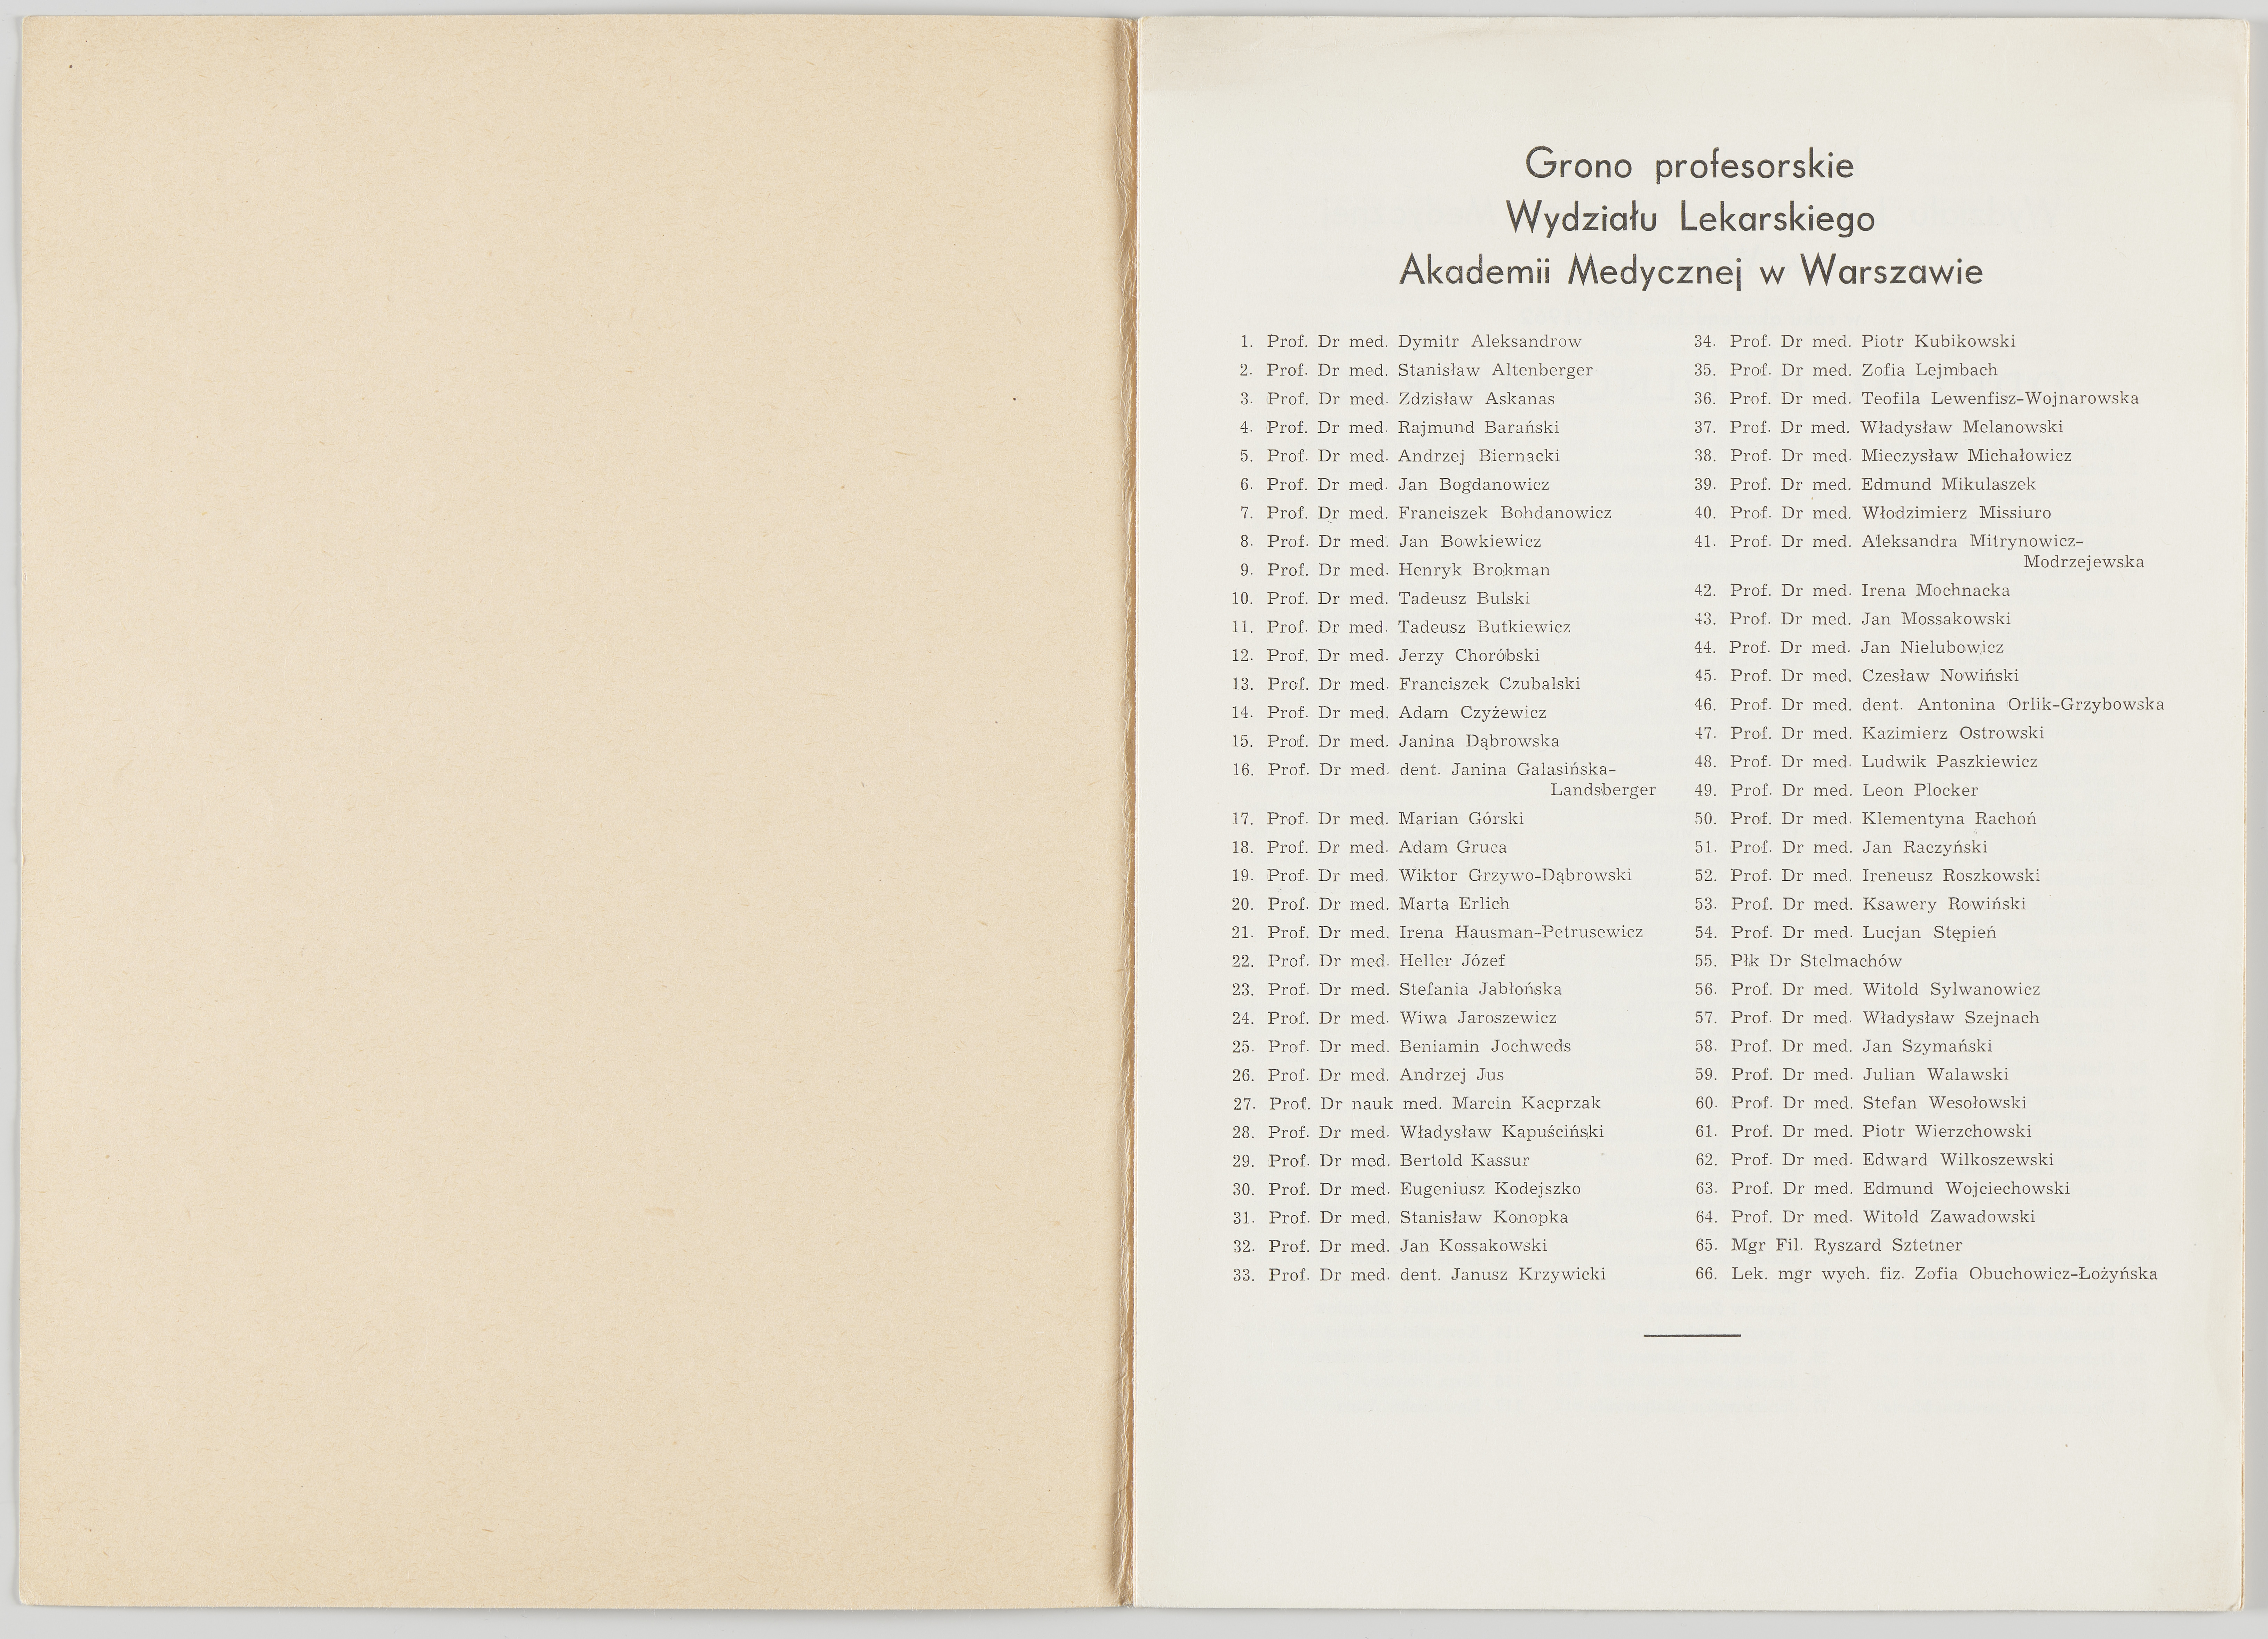 Grono profesorskie
Wydziału Lekarskiego
Akademii Medycznej w Warszawie
1. Prof. Dr med. Dymitr Aleksandrow
2. Prof. Dr med. Stanisław Altenberger
3. Prof. Dr med. Zdzisław Askanas
4. Prof. Dr med. Rajmund Barański
5. Prof. Dr med. Andrzej Biernacki
6. Prof. Dr med. Jan Bogdanowicz
7. Prof. Dr med. Franciszek Bohdanowicz
8. Prof. Dr med. Jan Bowkiewicz
9. Prof. Dr med. Henryk Brokman
10. Prof. Dr med. Tadeusz Bulski
11. Prof. Dr med. Tadeusz Butkiewicz
12. Prof. Dr med. Jerzy Choróbski
13. Prof. Dr med. Franciszek Czubalski
14. Prof. Dr med. Adam Czyżewicz
15. Prof. Dr med. Janina Dąbrowska
16. Prof. Dr med. dent. Janina Galasińska-
Landsberger
17. Prof. Dr med. Marian Górski
18. Prof. Dr med. Adam Gruca
19. Prof. Dr med. Wiktor Grzywo-Dąbrowski
20. Prof. Dr med. Marta Erlich
21. Prof. Dr med. Irena Hausman-Petrusewicz
22. Prof. Dr med. Heller Józef
23. Prof. Dr med. Stefania Jabłońska
24. Prof. Dr med. Wiwa Jaroszewicz
25. Prof. Dr med. Beniamin Jochweds
26. Prof. Dr med. Andrzej Jus
27. Prof. Dr nauk med. Marcin Kacprzak
28. Prof. Dr med. Władysław Kapuściński
29. Prof. Dr med. Bertold Kassur
30. Prof. Dr med. Eugeniusz Kodejszko
31. Prof. Dr med. Stanisław Konopka
32. Prof. Dr med. Jan Kossakowski
33. Prof. Dr med. dent. Janusz Krzywicki
34. Prof. Dr med. Piotr Kubikowski
35. Prof. Dr med. Zofia Lejmbach
36. Prof. Dr med. Teofila Lewenfisz-Wojnarowska
37. Prof. Dr med. Władysław Melanowski
38. Prof. Dr med. Mieczysław Michałowicz
39. Prof. Dr med. Edmund Mikulaszek
40. Prof. Dr med. Włodzimierz Missiuro
41. Prof. Dr med. Aleksandra Mitrynowicz-
Modrzejewska
42. Prof. Dr med. Irena Mochnacka
43. Prof. Dr med. Jan Mossakowski
44. Prof. Dr med. Jan Nielubowicz
45. Prof. Dr med. Czesław Nowiński
46. Prof. Dr med. dent. Antonina Orlik-Grzybowska
47. Prof. Dr med. Kazimierz Ostrowski
48. Prof. Dr med. Ludwik Paszkiewicz
49. Prof. Dr med. Leon Plocker
50. Prof. Dr med. Klementyna Rachoń
51. Prof. Dr med. Jan Raczyński
52. Prof. Dr med. Ireneusz Roszkowski
53. Prof. Dr med. Ksawery Rowiński
54. Prof. Dr med. Lucjan Stępień
55. Płk Dr Stelmachów
56. Prof. Dr med. Witold Sylwanowicz
57. Prof. Dr med. Władysław Szejnach
58. Prof. Dr med. Jan Szymański
59. Prof. Dr med. Julian Walawski
60. Prof. Dr med. Stefan Wesołowski
61. Prof. Dr med. Piotr Wierzchowski
62. Prof. Dr med. Edward Wilkoszewski
63. Prof. Dr med. Edmund Wojciechowski
64. Prof. Dr med. Witold Zawadowski
65. Mgr Fil. Ryszard Sztetner
66. Lek. mgr wych. fiz. Zofia Obuchowicz-Łożyńska